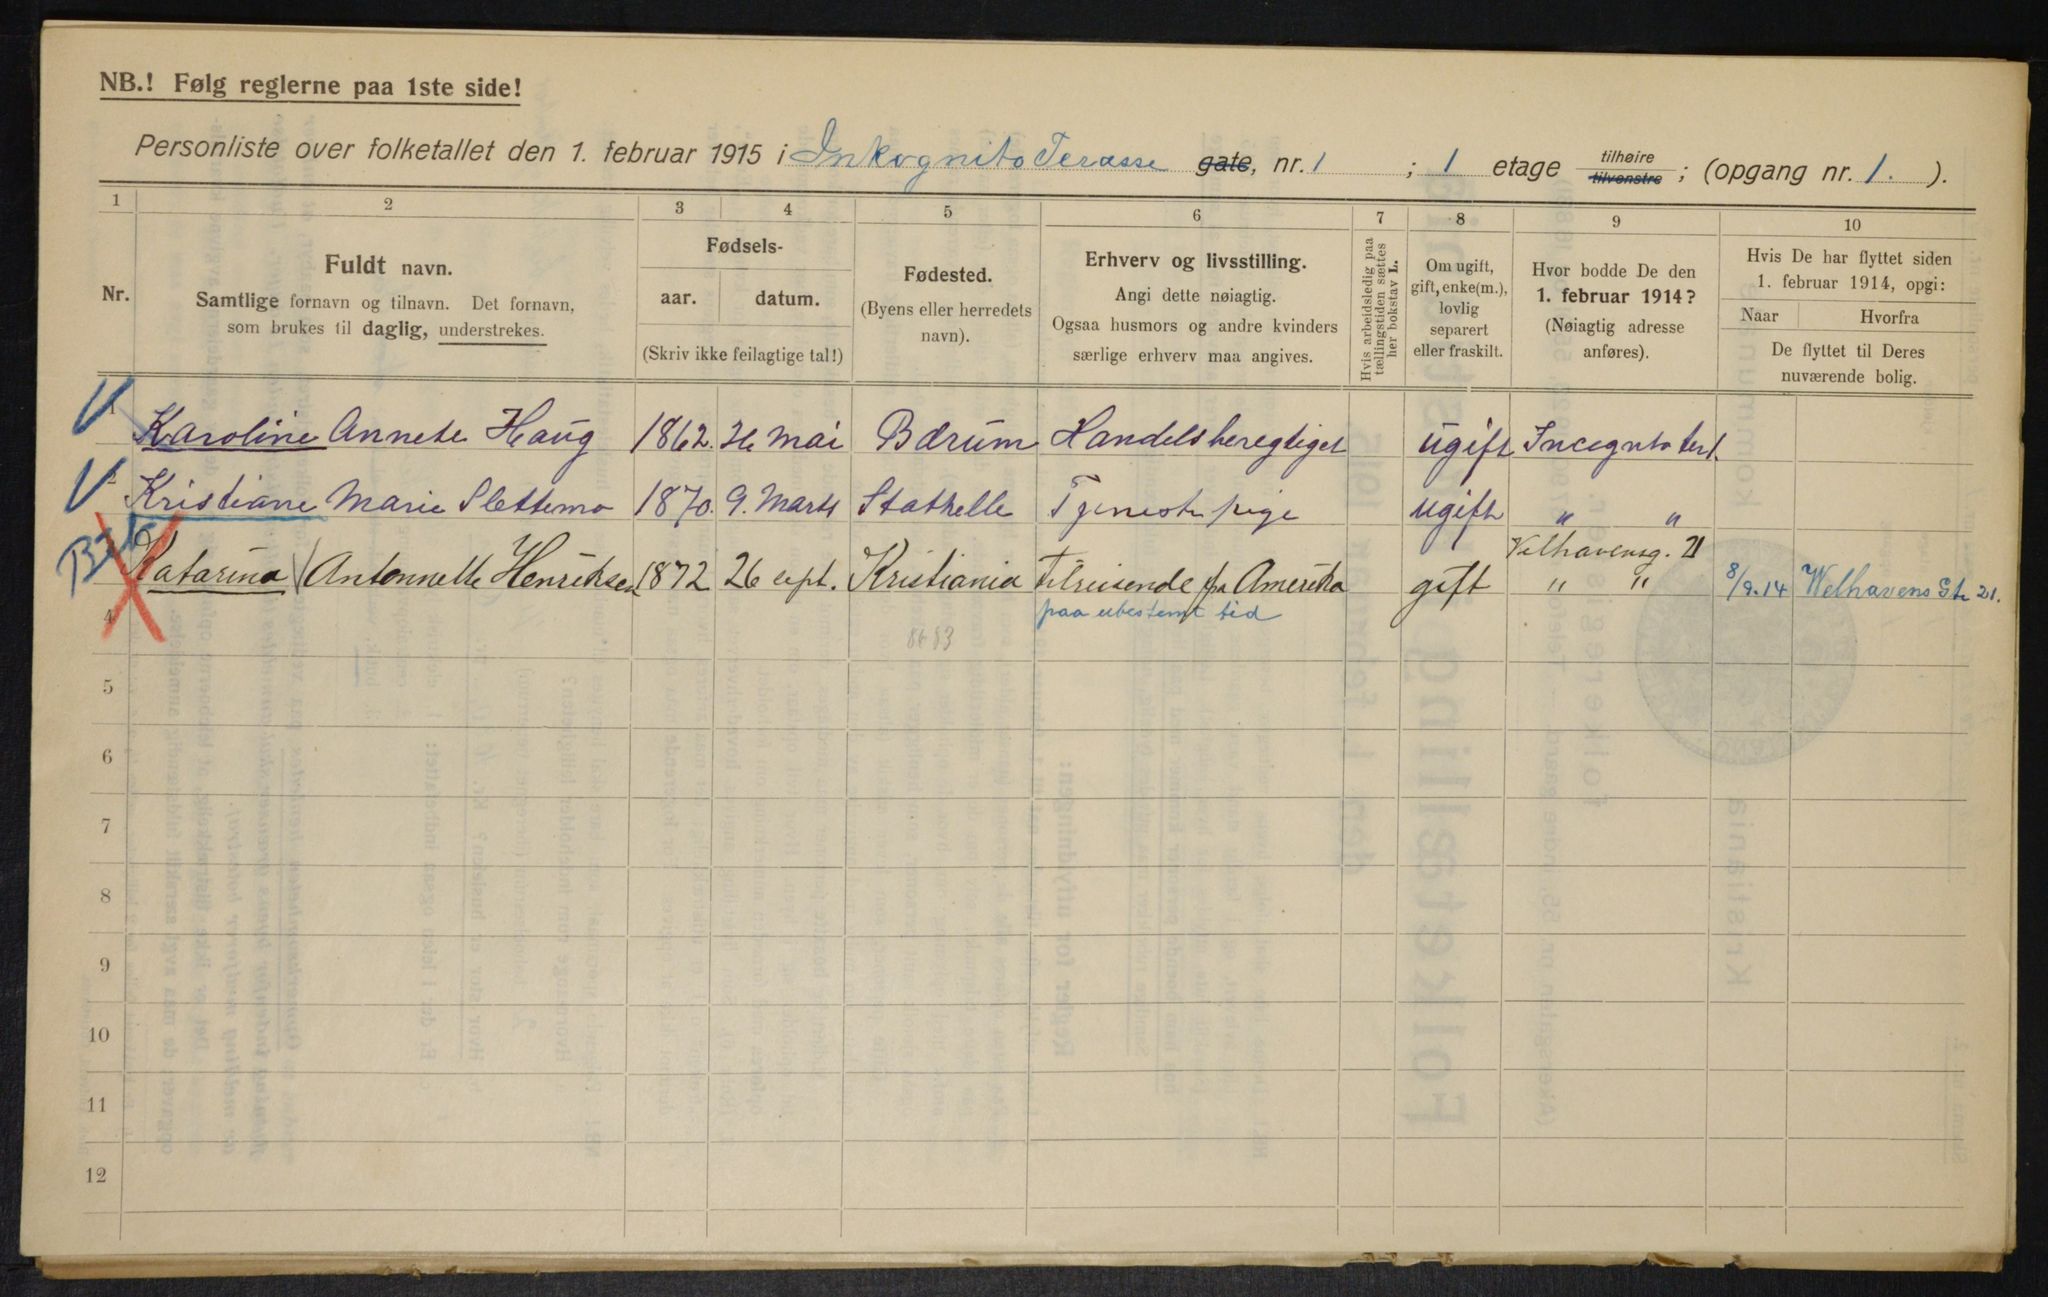 NB.! Følg reglerne paa 1ste side!
Personliste over folketallet den 1. februar 1915 i Inkognito Terasse gate, nr. 1 ; 1 etage tilhøire tilvenstre ; (opgang nr. 1. ).
1 2 3 4 5 6 7 8 9 10
Nr.
Fuldt navn.
Samtlige fornavn og tilnavn. Det fornavn,
som brukes til daglig, understrekes.
Fødsels-
aar. datum.
(Skriv ikke feilagtige tal!)
Fødested.
(Byens eller herredets
navn).
Erhverv og livsstilling.
Angi dette nøiagtig.
Ogsaa husmors og andre kvinders
særlige erhverv maa angives.
Hvis arbeidsledig paa
tællingstiden sættes
her bokstav L.
Om ugift,
gift, enke(m.),
lovlig
separert
eller fraskilt.
Hvor bodde De den
1. februar 1914?
(Nøiagtig adresse
anføres).
Hvis De har flyttet siden
1. februar 1914, opgi:
Naar Hvorfra
De flyttet til Deres
nuværende bolig.
1 Karoline Annete Haug 1862. 26 Mai Bærum Handelsberegtiget ugift Incognito terr.
2 Kristiane Marie Slettemo 1870. 9. Marts Stathelle Tjenestepige ugift " "
Velhavensg. 21
Katarina Antonnette Henriksen 1872 26 sept. Kristiania Tilreisende fra Amerika gift " " 8/9.14 Welhavens Gt. 21.
4 paa ubestemt tid
8683
5
6
7
8
9
10
11
12